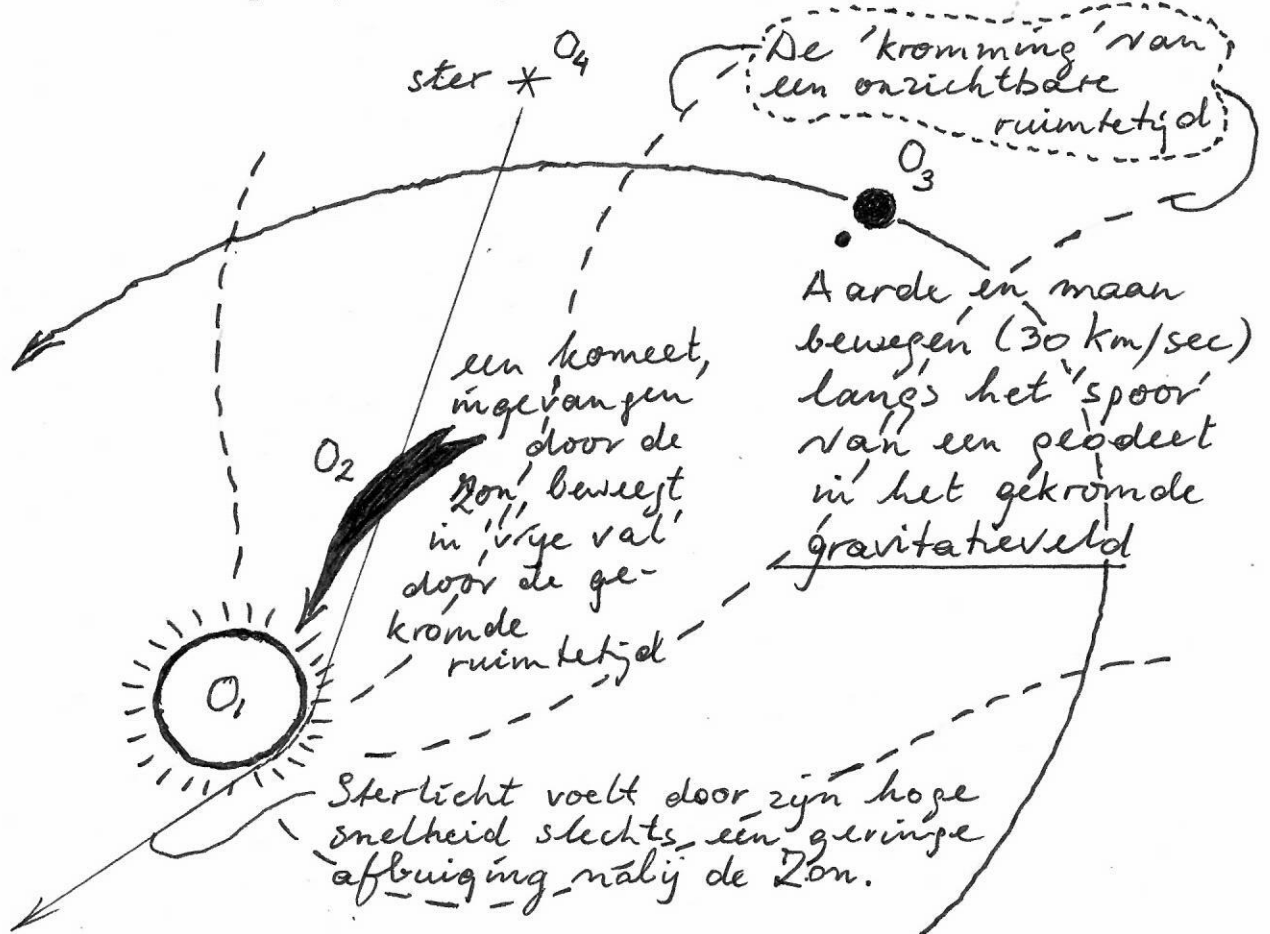 ster
O4
De 'kromming' van
een onzichtbare
ruimtetijd
O3
Aarde en maan
bewegen (30 km/sec)
langs het 'spoor'
van een geodeet
in het gekromde
gravitatieveld
een komeet,
ingevangen
door de
Zon, beweegt
in 'vrije val'
door de ge-
kromde
ruimtetijd
O2
O1
Sterlicht voelt door zijn hoge
snelheid slechts een geringe
afbuiging nabij de Zon.